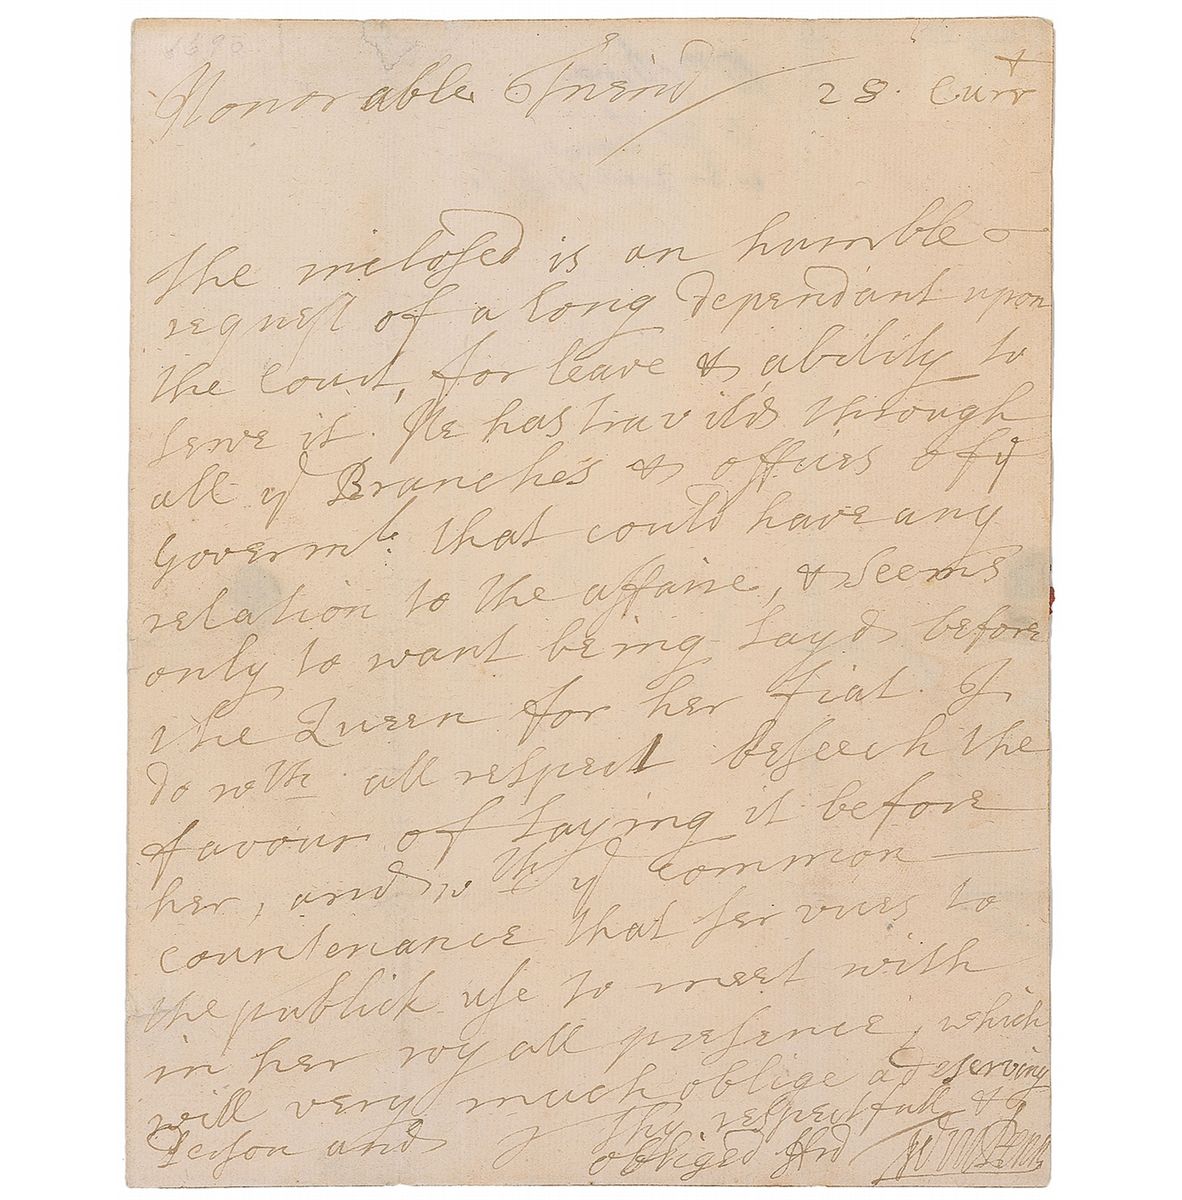 1690
Honorable Friend 28. Curr^t
The inclosed is an humble
request of a long dependant upon
the Court, for leave & ability to
serve it. He has travild through
all y^e Branches & offices of y^e
Governm^t. that could have any
relation to the affaire, & seems
only to want being layd before
the Queen for her fiat. I
do w^th all respect beseech the
favour of laying it before
her, and w^th y^e common
countenance that services to
the publick use to meet with
in her royall presence, which
will very much oblige a deserving
Person and Thy respectfull &
obliged ffrd Wm Penn